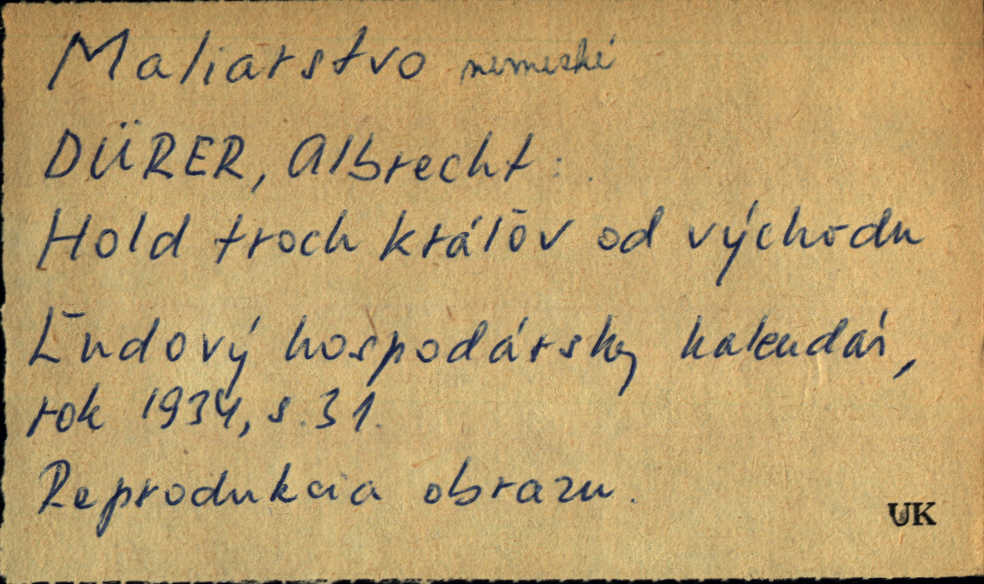 Maliarstvo nemecké
DÜRER, Albrecht:
Hold troch kráľov od východu
Ľudový hospodársky kalendár,
rok 1934, s. 31.
Reprodukcia obrazu.
UK